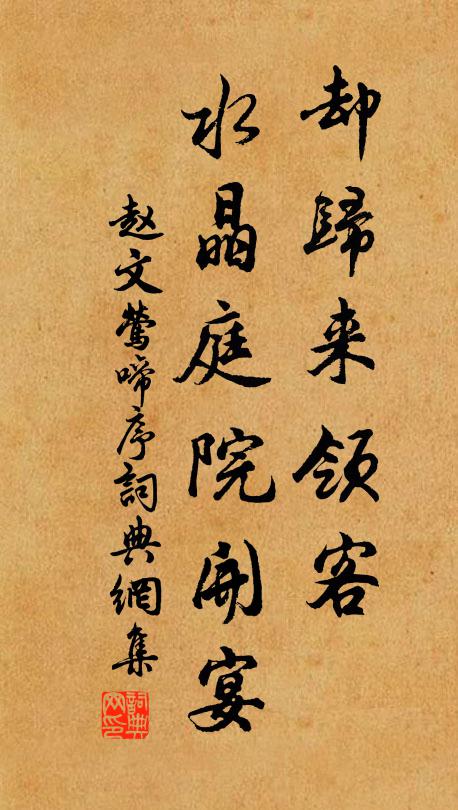 却歸来领客
水晶庭院開宴
赵文鶯啼序詞典網集
詞典網印